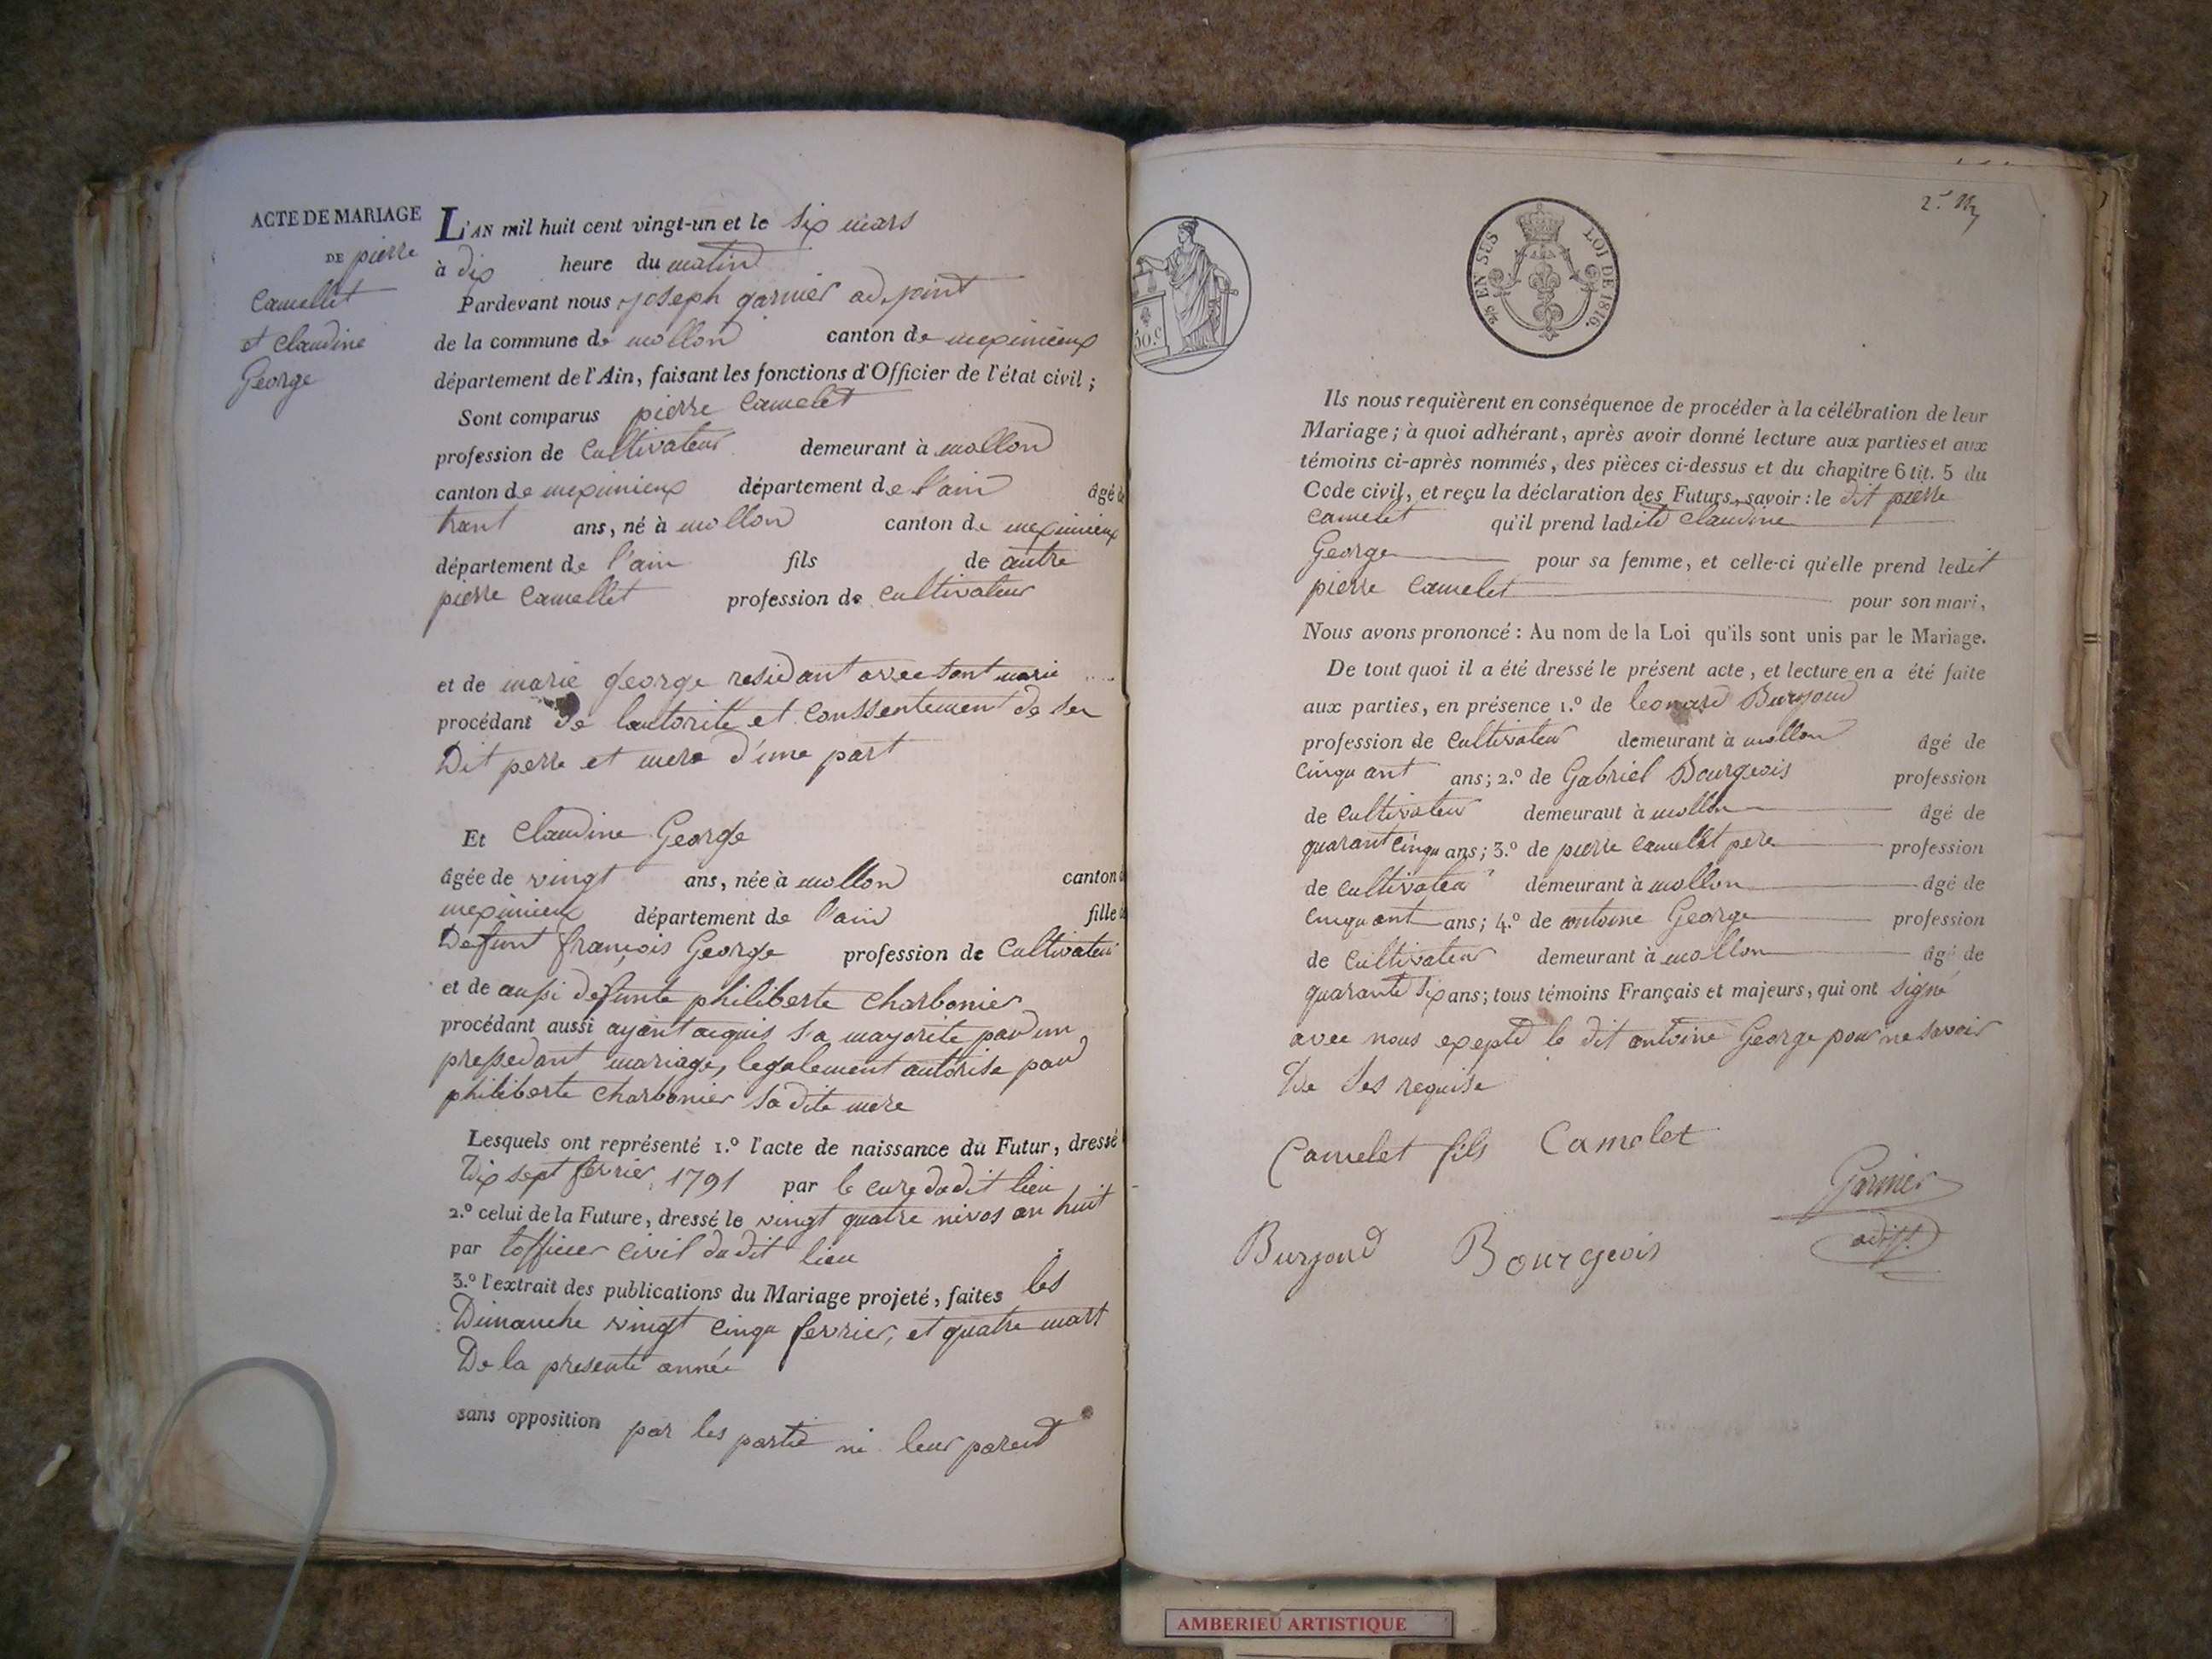 ACTE DE MARIAGE
DE pierre
Camellet
et Claudine
George
L'AN mil huit cent vingt-un et le six mars
à dix heure du matin
Pardevant nous joseph garnier adjoint
de la commune de mollon canton de meximieux
département de l'Ain, faisant les fonctions d'Officier de l'état civil ;
Sont comparus pierre Camelet
profession de Cultivateur demeurant à mollon
canton de meximieux département de l'ain âgé de
trant ans, né à mollon canton de meximieux
département de l'ain fils de autre
pierre Camellet profession de Cultivateur
et de marie george residant avec sont marie
procédant de lautorite et Conssentement de ser
Dit perre et mere d'une part
Et Claudine George
âgée de vingt ans, née à mollon canton d
meximieux département de l'ain fille d
Defunt françois George profession de Cultivateur
et de aussi defunte philiberte Charbonier
procédant aussi ayant acquis sa mayorite par un
pressedant mariage, legalement autorise par
philiberte Charbonier sa dite mere
Lesquels ont représenté 1.º l'acte de naissance du Futur, dressé
Dix sept fevrier 1791 par le cure dudit lieu
2.º celui de la Future, dressé le vingt quatre nivos an huit
par lofficier civil dudit lieu
3.º l'extrait des publications du Mariage projeté, faites les
Dimanche vingt cinqu fevrier, et quatre mart
De la presente année
sans opposition par les partie ni leur parent
50.c
25 EN SUS
LOI DE 1816.
Ils nous requièrent en conséquence de procéder à la célébration de leur
Mariage ; à quoi adhérant, après avoir donné lecture aux parties et aux
témoins ci-après nommés, des pièces ci-dessus et du chapitre 6 tit. 5 du
Code civil, et reçu la déclaration des Futurs, savoir : le dit pierre
Camelet qu'il prend ladite Claudine
George pour sa femme, et celle-ci qu'elle prend ledit
pierre Camelet pour son mari,
Nous avons prononcé : Au nom de la Loi qu'ils sont unis par le Mariage.
De tout quoi il a été dressé le présent acte, et lecture en a été faite
aux parties, en présence 1.º de leonard Burjoud
profession de Cultivateur demeurant à mollon âgé de
Cinquant ans ; 2.º de Gabriel Bourgeois profession
de Cultivateur demeurant à mollon âgé de
quarant cinqu ans ; 3.º de pierre Camellet pere profession
de Cultivateur demeurant à mollon âgé de
Cinquant ans ; 4.º de antoine George profession
de Cultivateur demeurant à mollon âgé de
quarante six ans ; tous témoins Français et majeurs, qui ont signé
avec nous exepte le dit antoine George pour ne savoir
De ses requise
Camelet fils Camelet
Garnier
adjt.
Burjoud Bourgeois
AMBERIEU ARTISTIQUE